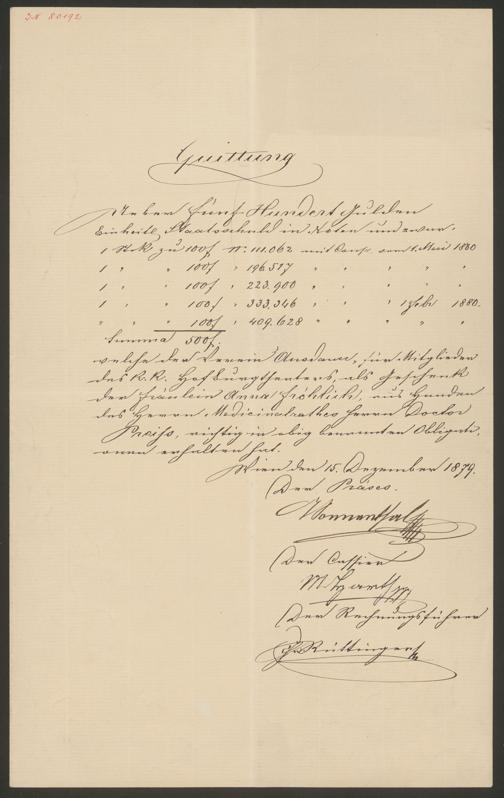 IN 80192
Quittung
Ueber Fünf Hundert Gulden
Einheitl. Staatsschuld in Noten und zwar.
1 Stck zu 100f. Nr. 111.062 mit Coup. vom 1. Mai 1880
1 " " 100f " 196.517 " " " "
1 " " 100f " 223.900 " " " "
1 " " 100f " 333.346 " " 1 Febr 1880.
" " " 100f " 409.628 " " " "
Summa 500f.
welche der Verein für Mitglieder
des k. k. Hofburgtheaters, als Geschenk
der Fräulein Anna Fröhlich, aus Handen
des Herrn Medicinalrathes Herrn Doctor
Preiss, richtig in obig benannten Obligati-
onen erhalten hat.
Wien den 15. Dezember 1879.
Der Präses.
Sonnenthal
Der Cassier
Der Rechnungsführer